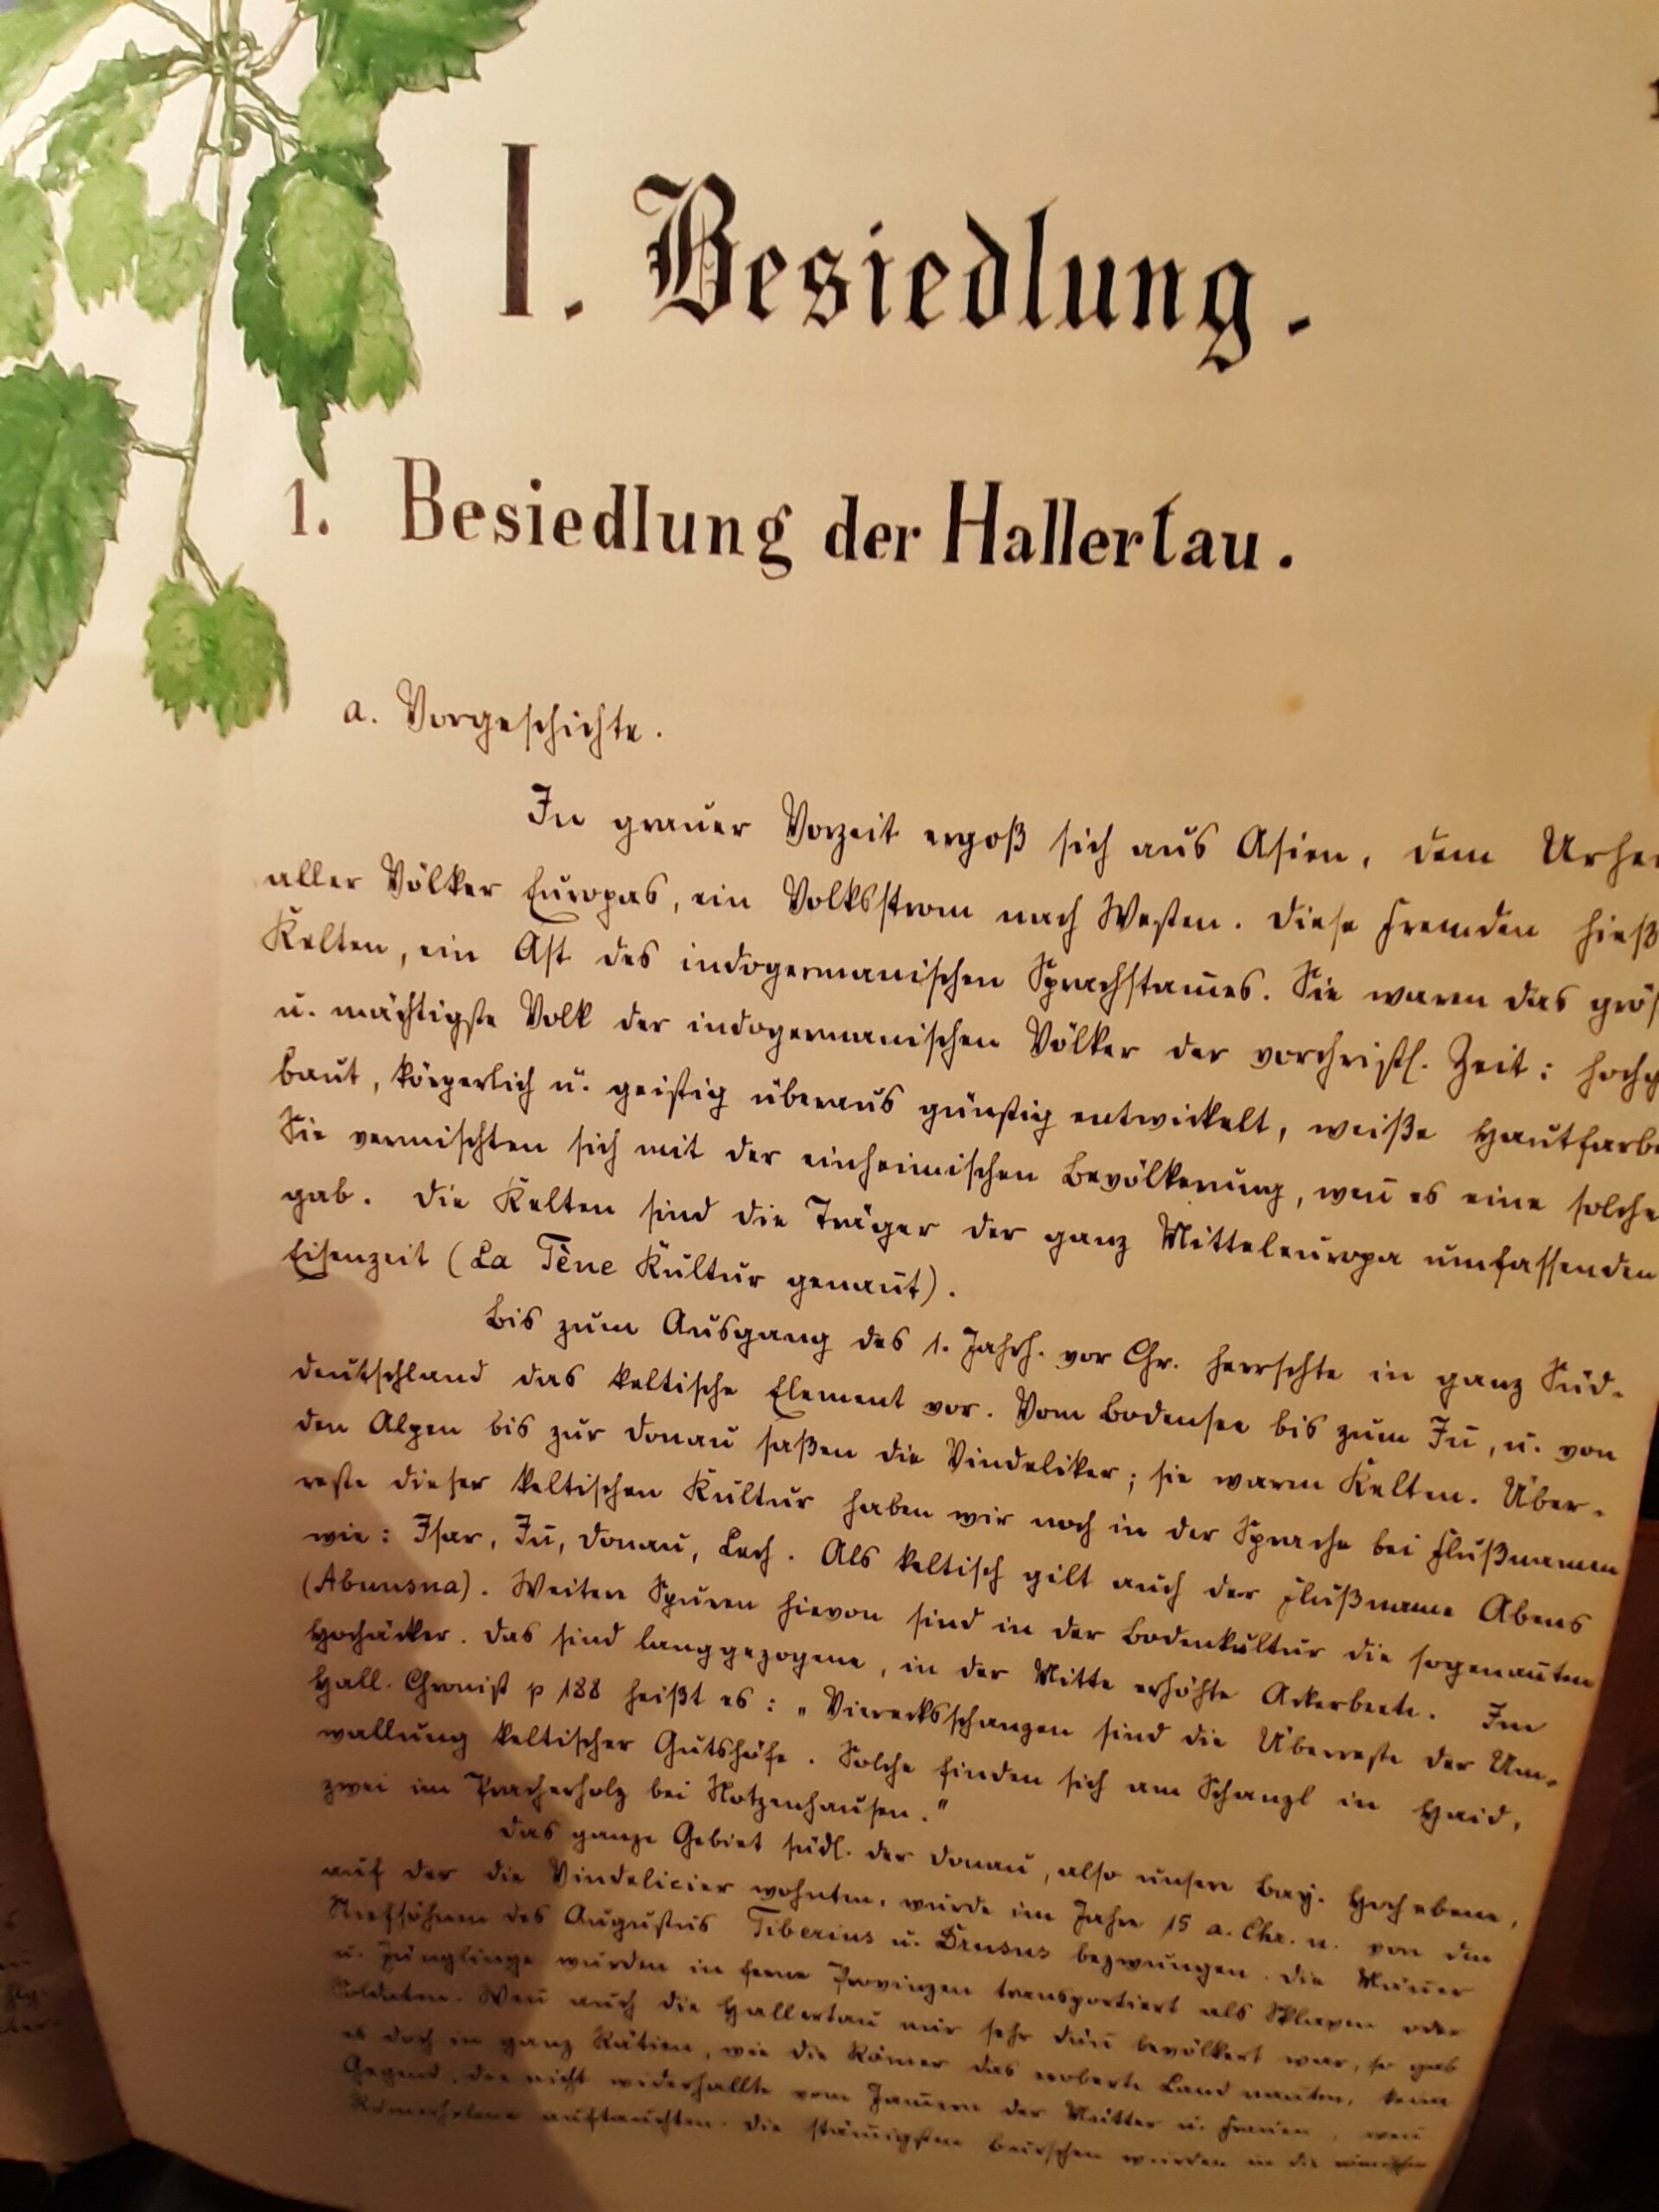 I. Besiedlung.
1. Besiedlung der Hallertau.
a. Vorgeschichte.
In grauer Vorzeit ergoß sich aus Asien, dem Urhei
aller Völker Europas, ein Volksstrom nach Westen. Diese Fremden hieß
Kelten, ein Ast des indogermanischen Sprachstam̅es. Sie waren das größ
u. mächtigste Volk der indogermanischen Völker der vorchristl. Zeit: hochg
baut, körperlich u. geistig überaus günstig entwickelt, weiße Hautfarbe
Sie vermischten sich mit der einheimischen Bevölkerung, wen̅ es eine solche
gab. Die Kelten sind die Träger der ganz Mitteleuropa umfassenden
Eisenzeit (La Tène Kultur genan̅t).
Bis zum Ausgang des 1. Jahrh. vor Chr. herrschte in ganz Süd-
deutschland das keltische Element vor. Vom Bodensee bis zum In̅, u. von
den Alpen bis zur Donau saßen die Vindeliker; sie waren Kelten. Über-
reste dieser keltischen Kultur haben wir noch in der Sprache bei Flußnamen
wie: Isar, In̅, Donau, Lech. Als keltisch gilt auch der Flußname Abens
(Abuusna). Weitere Spuren hievon sind in der Bodenkultur die sogenan̅ten
Hochäcker. Das sind langgezogene, in der Mitte erhöhte Ackerbeete. Im
Hall. Chronist p 188 heißt es: „Vierecksschanzen sind die Überreste der Um-
wallung keltischer Gutshöfe. Solche finden sich am Schanzl in Haid,
zwei im Pracherholz bei Notzenhausen."
Das ganze Gebiet südl. der Donau, also unsere bay. Hochebene,
auf der die Vindelicier wohnten, wurde im Jahre 15 a. Chr. n. von den
Stiefsöhnen des Augustus Tiberius u. Drusus bezwungen. Die Män̅er
u. Jünglinge wurden in ferne Provinzen transportiert als Sklaven oder
Soldaten. Wen̅ auch die Hallertau nur sehr dün̅ bevölkert war, so gab
es doch in ganz Rätien, wie die Römer das eroberte Land nan̅ten, keine
Gegend, die nicht widerhallte vom Jam̅ern der Mütter u. Frauen, wen̅
Römerhelme auftauchten. Die stäm̅igsten Burschen wurden in die römischen